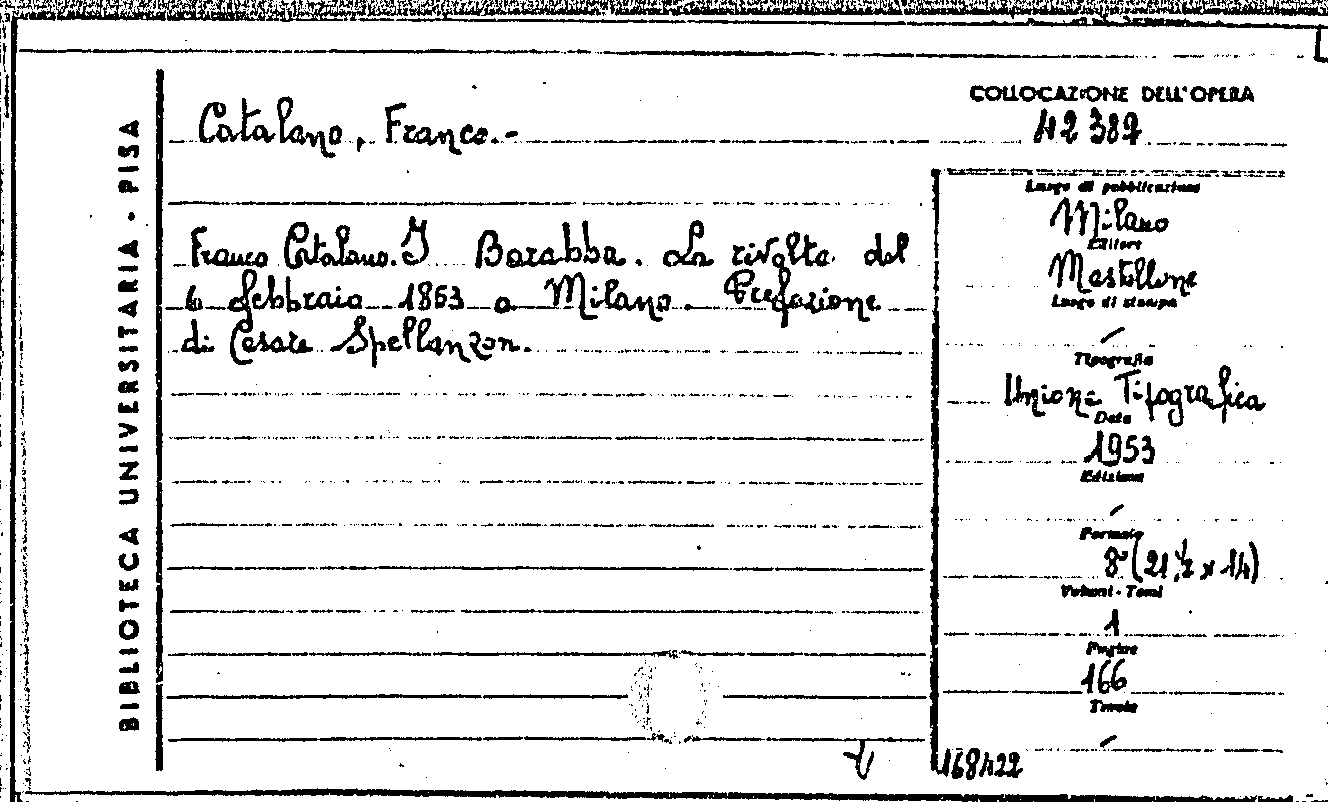 BIBLIOTECA UNIVERSITARIA - PISA
Catalano, Franco.-
Franco Catalano. I Barabba. La rivolta del
6 febbraio 1853 a Milano. Prefazione
di Cesare Spellanzon.
COLLOCAZIONE DELL'OPERA
H2 387
Luogo di pubblicazione
Milano
Editore
Mastellone
Luogo di stampa
/
Tipografia
Unione Tipografica
Data
1953
Edizione
/
Formato
8° (21,½ x 14)
Volumi - Tomi
1
Pagine
166
Tavole
/
168422